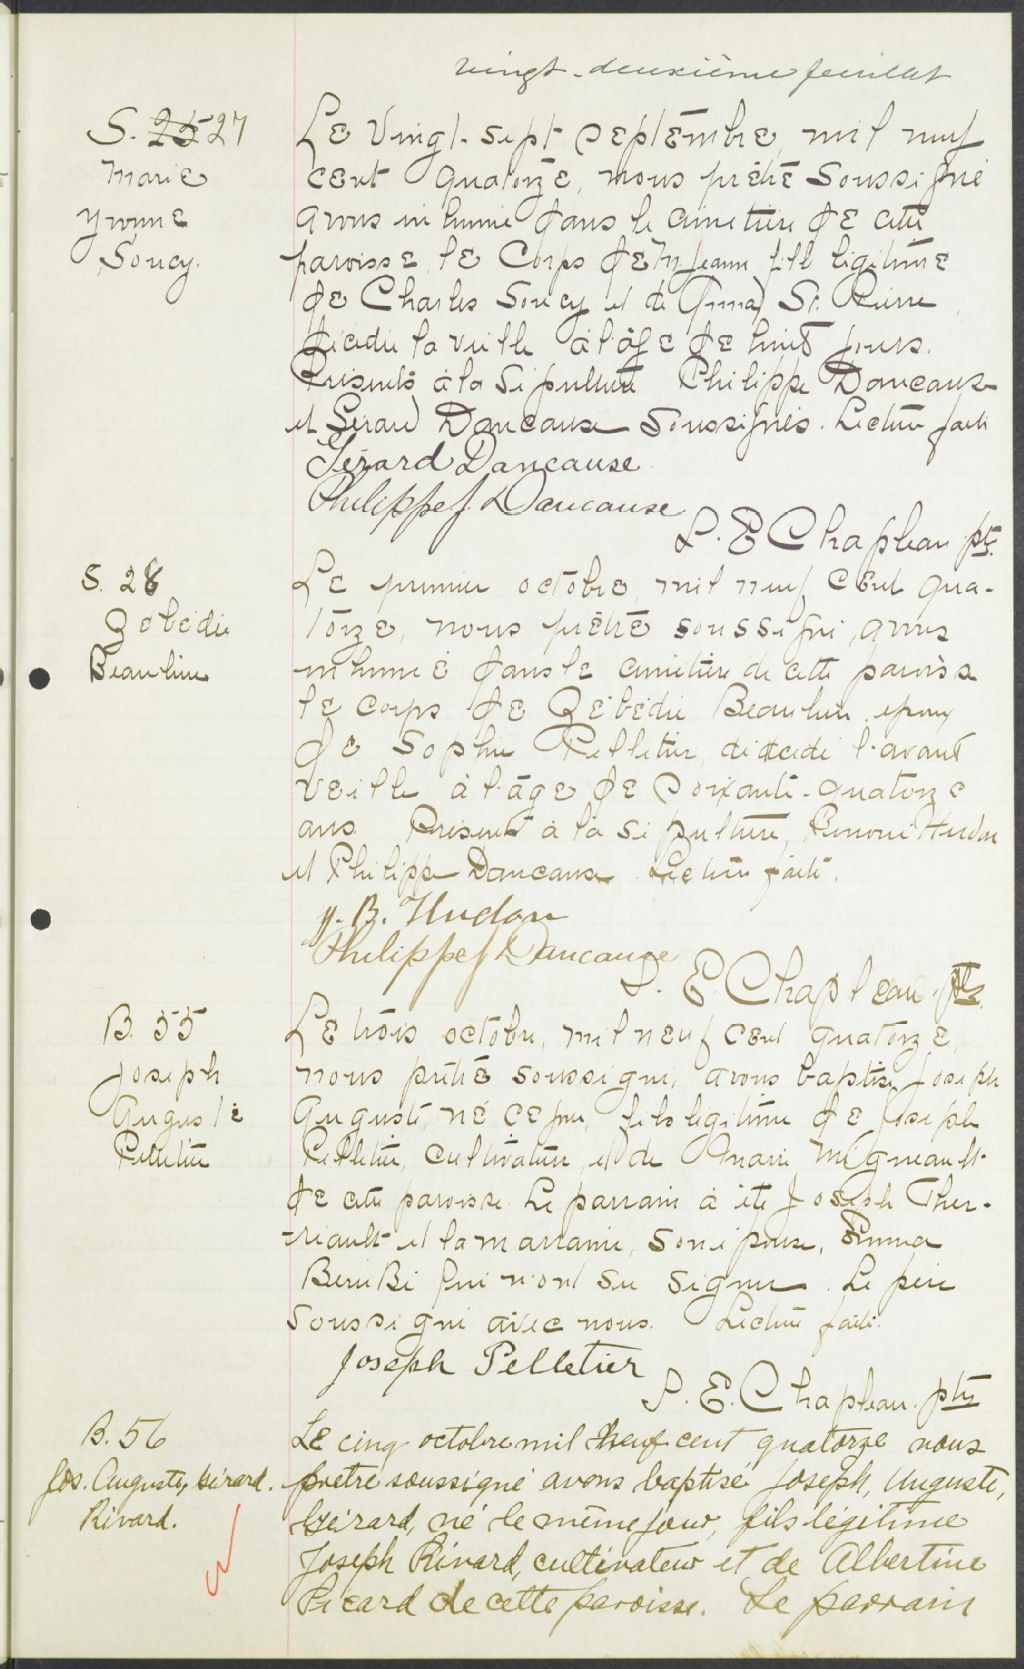 vingt-deuxième feuillet
S. 25 27
Marie
Yvonne
Soucy.
Le vingt-sept septembre, mil neuf
cent quatorze, nous prêtre soussigné
avons inhumé dans le cimetière de cette
paroisse, le corps de M. Jeanne fille légitime
de Charles Soucy et de Anna St. Pierre
décédée la veille à l'âge de huit jours.
Présents à la sépulture Philippe Dancause
et Gérard Dancause soussignés. Lecture faite
Gérard Dancause
Philippe J. Dancause
L. E. Chapleau ptr.
S. 28
Zébédée
Beaulieu
Le premier octobre, mil neuf cent qua-
torze, nous prêtre soussigné, avons
inhumé dans le cimetière de cette paroisse
le corps de Zébédée Beaulieu, époux
de Sophie Pelletier, décédé l'avant
veille à l'âge de soixante-quatorze
ans. Présents à la sépulture, Hudon
et Philippe Dancause. Lecture faite.
J. B. Hudon
Philippe J Dancause
L. E. Chapleau ptr.
B. 55
Joseph
Auguste
Pelletier
Le trois octobre, mil neuf cent quatorze,
nous prêtre soussigné, avons baptisé Joseph
Auguste, né ce jour, fils légitime de Joseph
Pelletier, cultivateur, et de Marie Migneault
de cette paroisse. Le parrain a été Joseph Ther-
riault et la marraine, son épouse, Emma
Bérubé qui n'ont su signer. Le père
soussigné avec nous. Lecture faite.
Joseph Pelletier
L. E. Chapleau. ptr
B. 56
Jos. Auguste, Gérard.
Rivard.
Le cinq octobre mil neuf cent quatorze nous
prêtre soussigné avons baptisé Joseph, Auguste,
Gérard, né le même jour, fils légitime
Joseph Rivard, cultivateur et de Albertine
Picard de cette paroisse. Le parrain